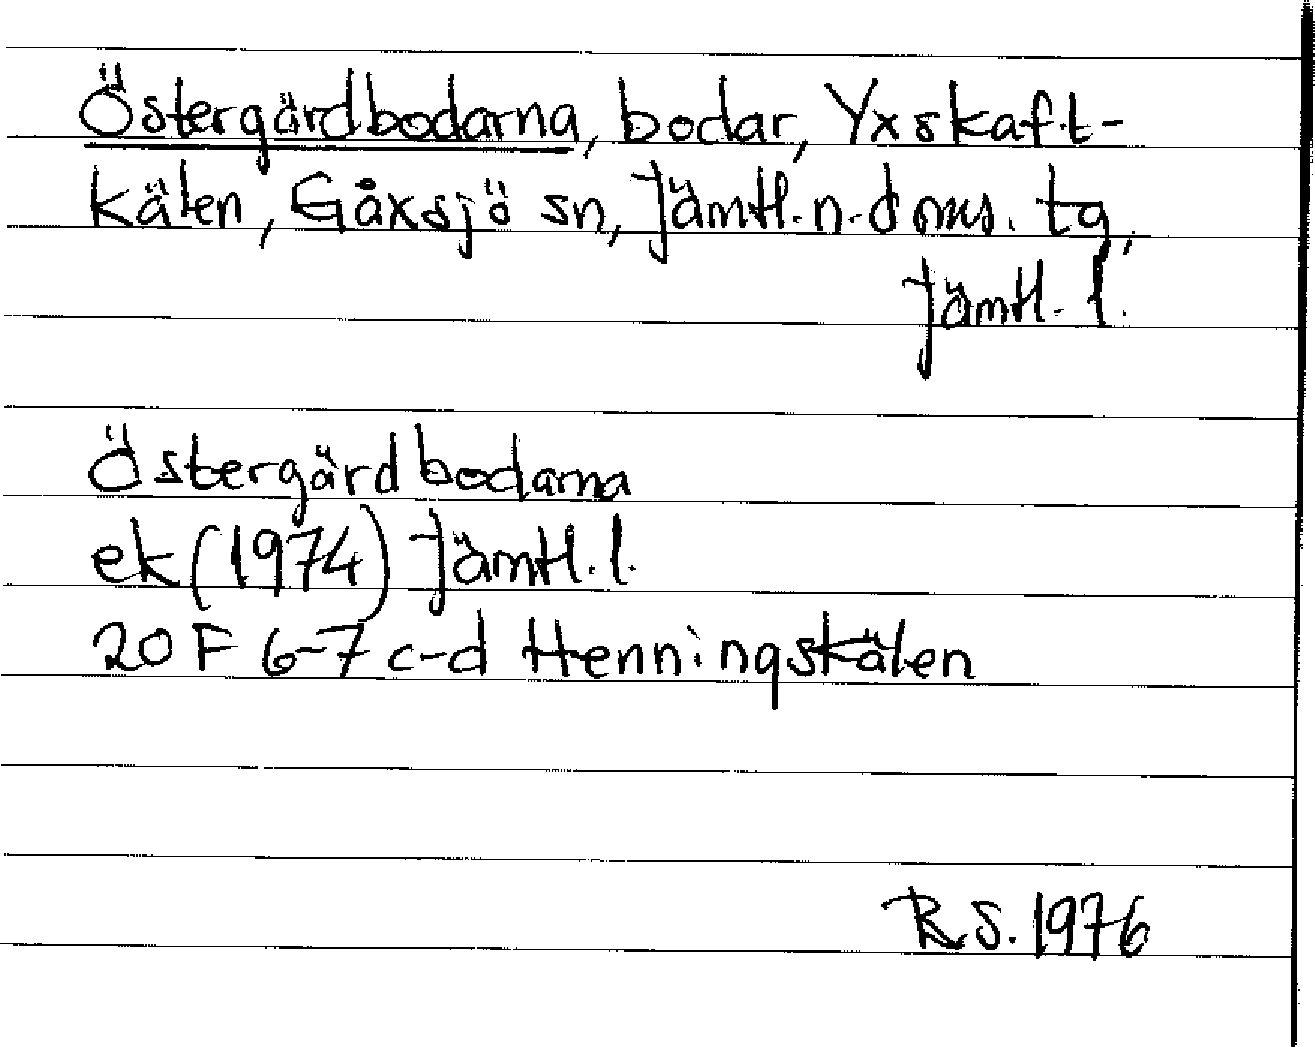 Östergärdbodarna, bodar, Yxskaft-
kälen, Gåxsjö sn, Jämtl. n. doms. tg,
Jämtl. l.
Östergärdbodarna
ek (1974) Jämtl. l.
20 F 6-7 c-d Henningskälen
R S. 1976